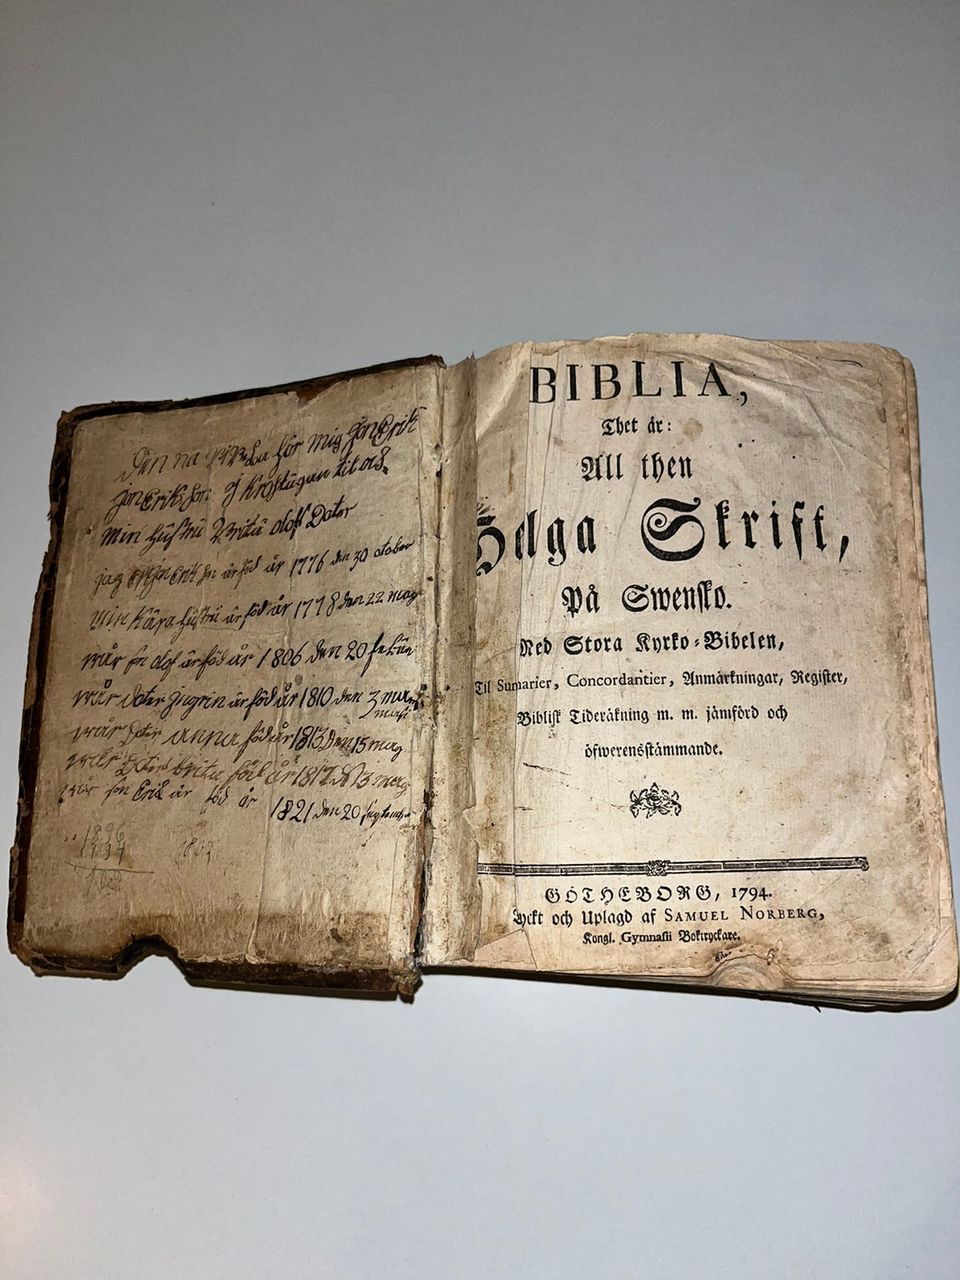 Den na
hör Mig Jon Erik
Jon Erik Son
til oss
Min Hustru Britu Olof Doter
jag Erik Son är föd år 1776 den 30 october
Min Kära Hustru är föd år 1778 den 22 maij
wår son Olof är föd år 1806 den 20
wår Doter Jngrin är föd år 1810 den 3
wår Doter anna föd år 1813 den 15 maij
wår Doter britu föd år 1817 d 13
wår son Erik är föd år
1821 den 20
1803
BIBLIA,
Thet är:
All then
Helga Skrift,
På Swensko.
Med Stora Kyrko-Bibelen,
Til Sumarier, Concordantier, Anmärkningar, Register,
Biblisk Tideräkning m. m. jämförd och
öfwerensstämmande.
GÖTHEBORG, 1794.
Tryckt och Uplagd af SAMUEL NORBERG,
Kongl. Gymnasii Boktryckare.